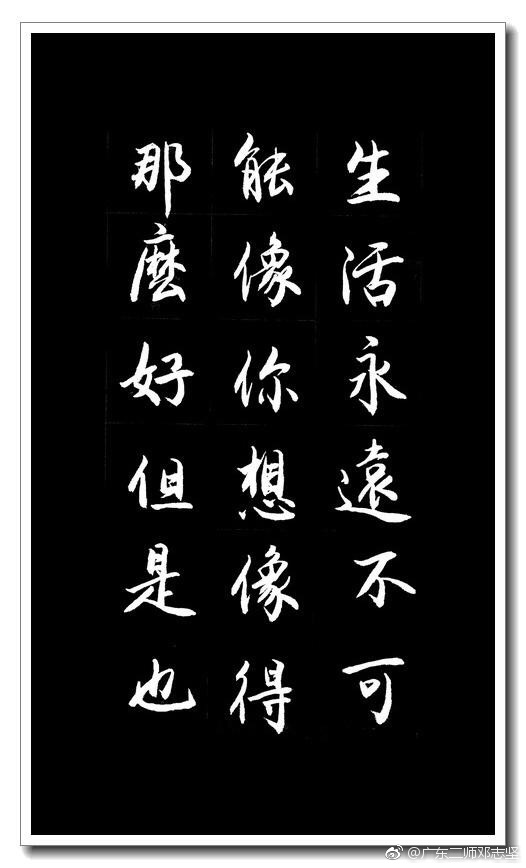 生活永遠不可
能像你想像得
那麼好但是也
@广东二师邓志坚